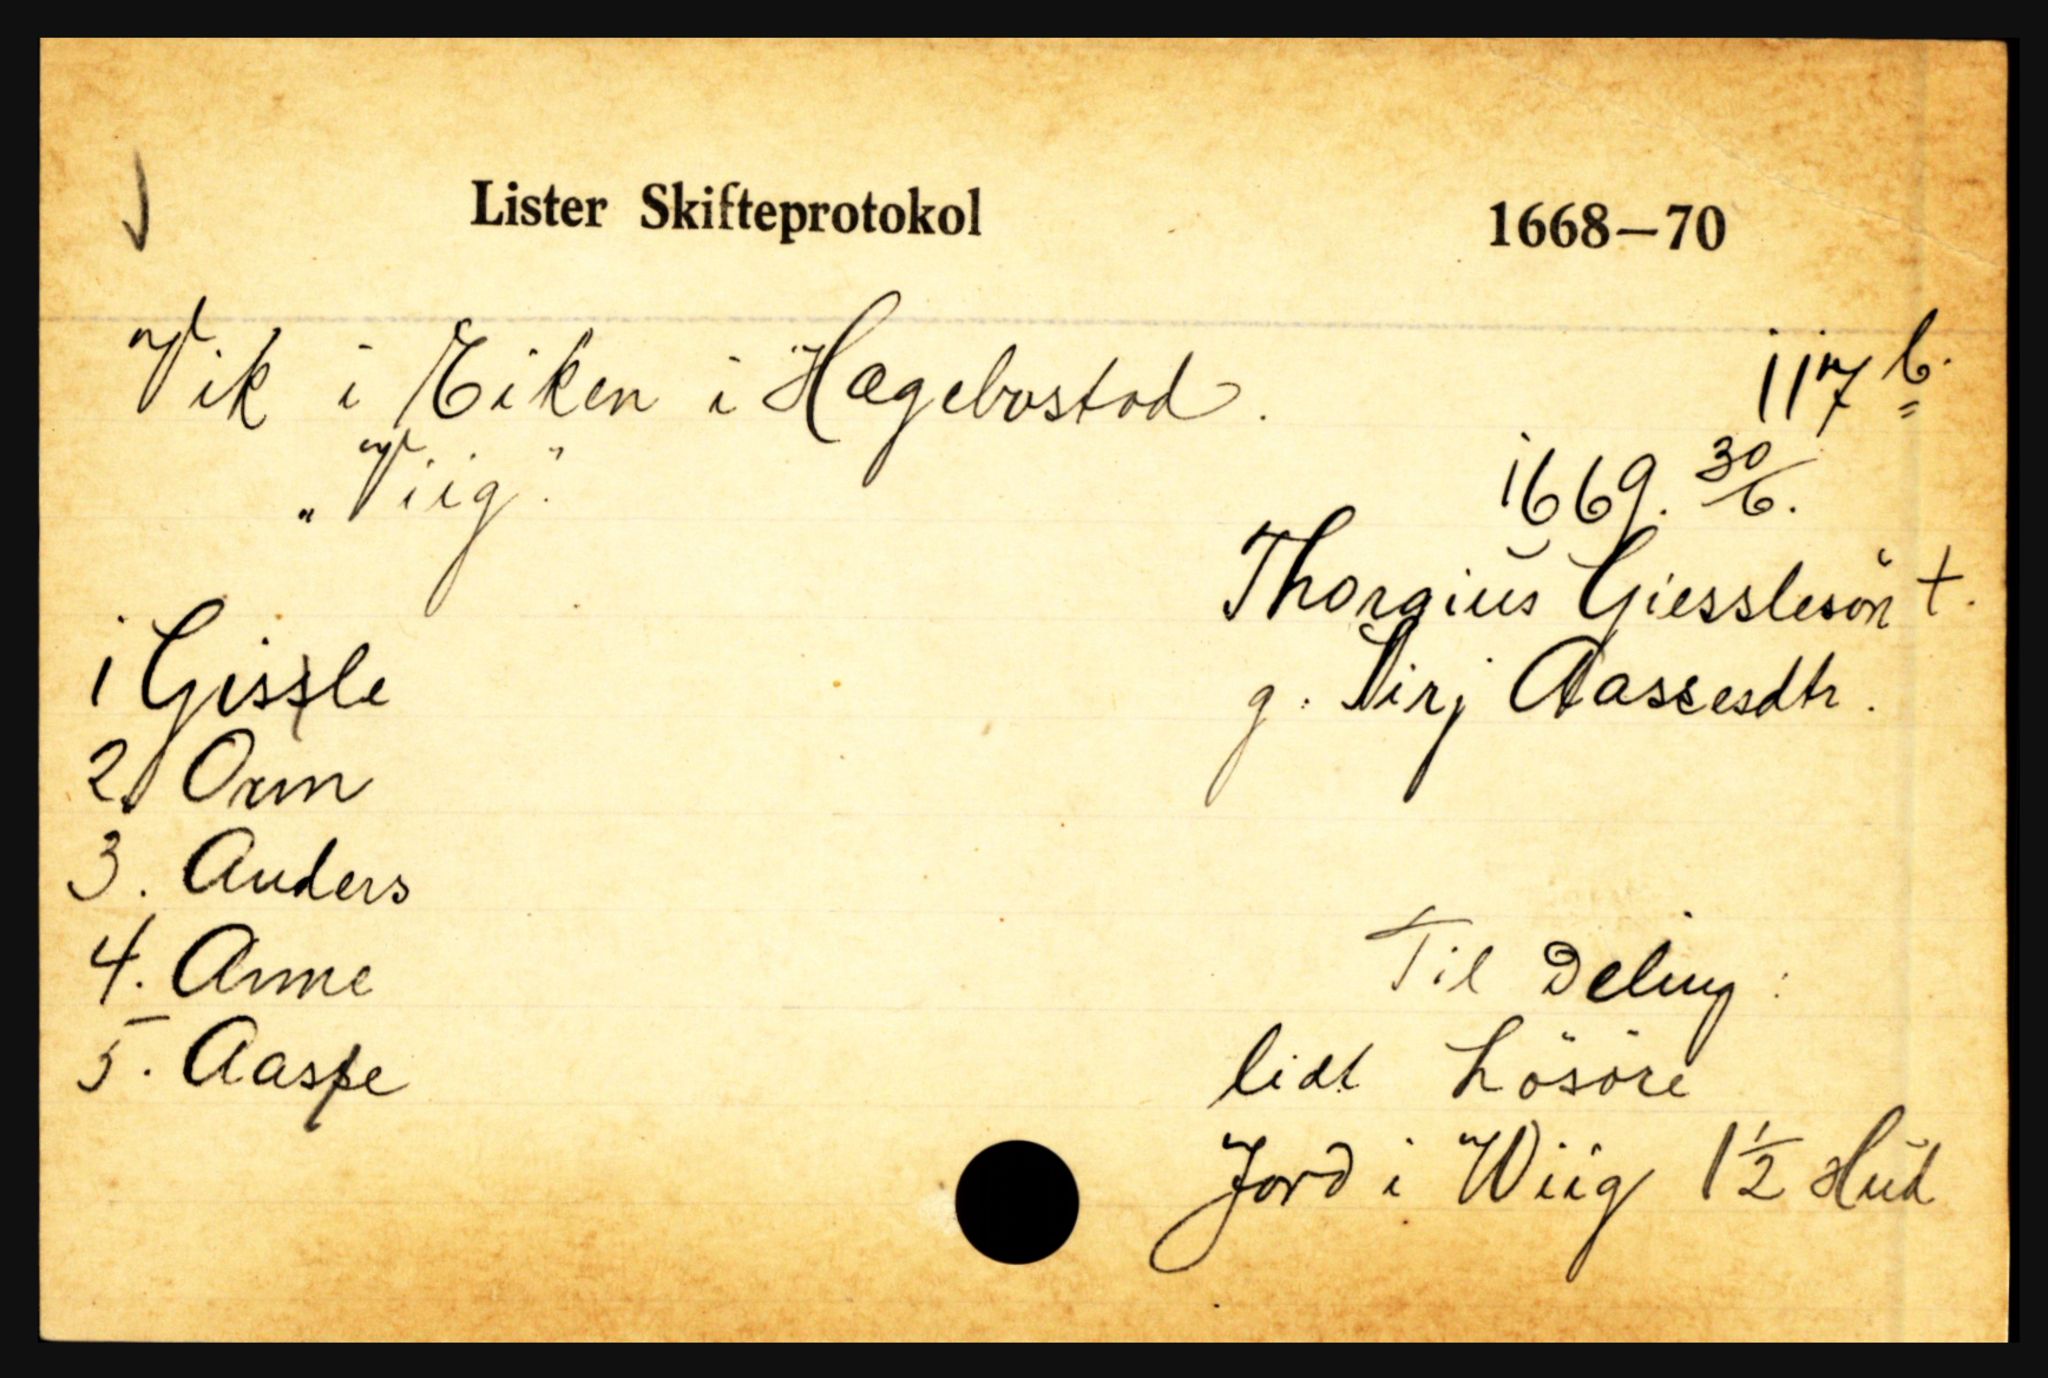 Lister Skifteprotokol 1668—70
Vik i Eiken i Hægebostad. 117 b.
„Viig". 1669. 30/6.
Thorgius Giesslesön †.
1 Gissle g. Sirj Aassesdtr.
2. Orm
3. Anders
4. Anne Til Deling:
5. Aasse lidt Lösöre
Jord i Wiig 1½ Hud